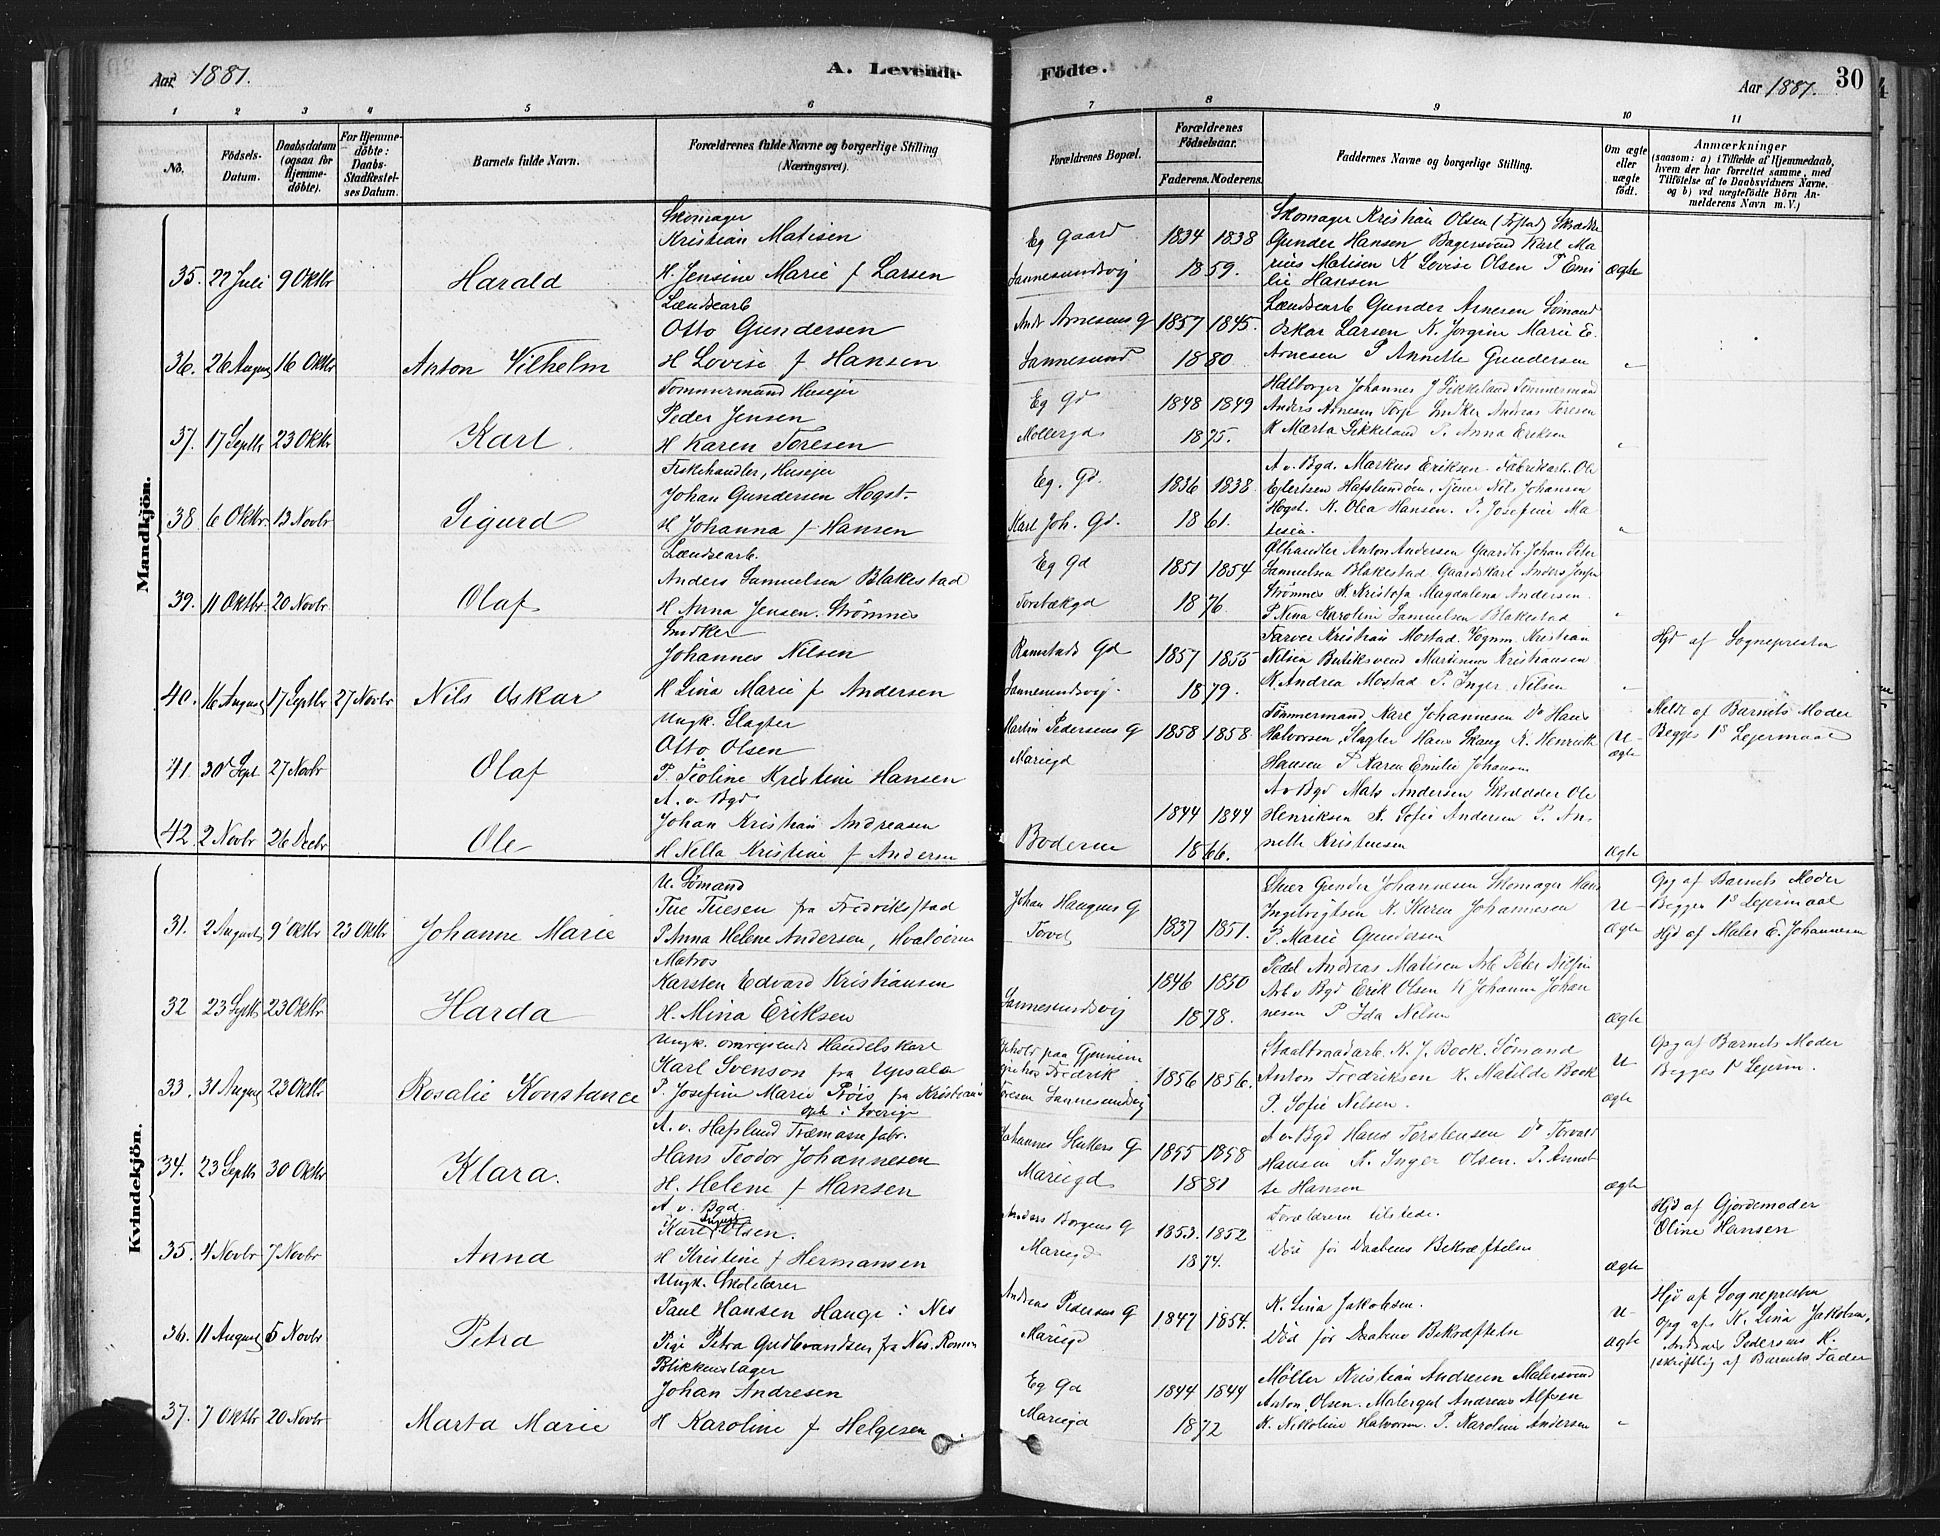 Aar 1881.
A. Levende
Födte.
Aar 1881.
30
1 2 3 4 5 6 7 8 9 10 11
No.
Födsels-Datum.
Daabsdatum (ogsaa for Hjemmedöbte).
For Hjemmedöbte: Daabs-Stadfæstelses Datum.
Barnets fulde Navn.
Forældrenes fulde Navne og borgerlige Stilling (Næringsvei).
Forældrenes Bopæl.
Forældrenes Födselsaar.
Faderens. Moderens.
Faddernes Navne og borgerlige Stilling.
Om ægte eller uægte födt.
Anmærkninger
(saasom: a) i Tilfælde af Hjemmedaab, hvem der har forrettet samme, med Tilföielse af to Daabsvidners Navne, og b) ved uægtefödte Börn Anmelderens Navn m. V.)
Mandkjön.
Skomager
Kristian Matisen
35. 22 Juli 9 Oktbr Harald H. Jensine Marie f Larsen
Eg Gaard 1834 1838
Sannesundsvj 1859.
Skomager Kristian Olsen
Gunder Hansen Bagersvend Karl Ma
rius Matisen K Lovise Olsen P Emi
lie Hansen
ægte
Lændsearb
Otto Gundersen
36. 26 August 16 Oktbr Anton Vilhelm H Lovise f Hansen
Andr Arnesens G 1857 1845.
Sannesund 1880
Lændsearb Gunder Arnesen Sømand
Oskar Larsen K. Jørgine Marie E.
Arnesen P Annette Gundersen
"
Tømmermand Huseier
Peder Jensen
37. 17 Septbr 23 Oktbr Karl. H Karen Toresen
Eg Gd 1848 1849
Møllergd 1875.
Johannes J Sikkeland Tømmermand
Anders Arnesen Torp Andreas Toresen
K Marta Sikkeland P. Anna Eriksen
"
Fiskehandler, Huseier
Johan Gundersen Høgst
38 6 Oktbr 13 Novbr Sigurd H Johanna f Hansen
Eg. Gd. 1836 1838.
Karl Joh. Gd. 1861.
A v. Bgd. Markus Eriksen Fabrikarb. Ole
Eilertsen Hafslundøen, Tjener Nils Johansen
Høgst. K. Olea Hansen. P. Josefine Ma
tisen.
"
Lændsearb.
Anders Samuelsen Blakestad
39. 11 Oktbr 20 Novbr Olaf H Anna Jensen Strømnes
Eg Gd 1851 1854
Torsbækgd 1876
Ølhandler Anton Andersen Gaardbr. Johan Peter
Samuelsen Blakestad Gaardskarl Anders Jensen
Strømnes K Kristofa Magdalena Andersen.
P Nina Karoline Samuelsen Blakestad
"
Snidker
Johannes Nilsen
40. 16 August 17 Septbr 27 Novbr Nils Oskar H Lina Marie f Andersen
Ramstads Gd 1857 1855
Sannesundsvj. 1879.
Farver Kristian Mostad. Vognm. Kristian
Nilsen Butiksvend Martinus Kristiansen
K Andrea Mostad P. Inger Nilsen
"
Hjd af Sognepresten
Ungk. Slagter
Otto Olsen
41. 30 Sept 27 Novbr Olaf P. Teoline Kristine Hansen
Martin Pedersens G 1858 1858
Mariegd
Tømmermand Karl Johannesen Do Hans
Halvorsen, Slagter Hans Skaug K. Henrikke
Hansen P Karen Emilie Johansen
U-
ægte
Meldt af Barnets Moder
Begges 1s Lejermaal
A. v. Bgd
Johan Kristian Andreasen
42. 2 Novbr 26 Decbr Ole H Nella Kristine f Andersen
Boderne 1844 1844
1866.
A v Bgd Mats Andersen Skrædder Ole
Henriksen K Sofie Andersen P. An
nette Kristensen
ægte
Kvindekjön.
U. Sømand
Tue Tuesen fra Fredriksstad
31. 2 August 9 Oktbr 23 Oktbr Johanne Marie P. Anna Helene Andersen, Hvaløerne
Johan Haugens G
Torvet 1837 1851.
Gunder Johannesen Skomager Hans
Ingelvigtsen K. Karen Johannesen
P. Marie Gundersen
U-
ægte
Opg af Barnets Moder
Begges 1s Lejermaal
Hjd af Maler E. Johannesen
Matros
Karsten Edvard Kristiansen
32 23 Septbr 23 Oktbr Harda H. Mina Eriksen
Sannesundsvj 1846 1850
1878.
Pedel Andreas Matisen Arb Peter Nilsen
Arb v Bgd Erik Olsen K Johanne Johan
nesen P Ida Nilsen
ægte
Ungk. omreisende Handelskarl
Karl Svenson fra Upsala
33. 31 August 23 Oktbr Rosalie Konstance P. Josefine Marie Røis fra Kristiania
oph i Sverige
Ophold paa Gjennem
Fredrik 1856 1856.
Toresen Sannesundsvj
Staaltraadarb. K. J. Bock. Sømand
Anton Fredriksen K. Matilde Bock
P. Sofie Nilsen.
U-
ægte
Opg af Barnets Moder
Begges 1s Lejerm.
A. v. Hafslund Træmassefabr.
Hans Teodor Johannesen
34. 23 Septbr 30 Oktbr Klara. H. Helene f Hansen
Johannes G 1855 1858
Mariegd 1881
A v. Bgd Hans Torstensen Do Torvald
Hansen K. Inger Olsen. P. Annet
te Hansen
ægte
A. v. Bgd.
Karl August Olsen.
35. 4 Novbr 7 Novbr Anna H Kristine f Hermansen
Anders Borgens G 1853. 1852
Mariegd 1874.
Forældrene tilstede.
Død før Daabens Bekræftelse
ægte
Hjd af Gjordemoder
Oline Hansen
Ungk. Skolelærer
Paul Hansen Hauge i Nes
36. 11 August 5 Novbr Petra Pige Petra Gudbrandsen fra Nes. Romer
Andreas Pedersens G 1847 1854.
Mariegd
K. Lina Jakobsen.
Død før Daabens Bekræftelse
U-
ægte
Hjd af Sognepresten
Opg af K. Lina Jakobsen,
Andreas Pedersens K.
skriftlig af Barnets Fader
Blikkenslager
Johan Andresen
37. 7 Oktbr 20 Novbr Marta Marie H Karoline f Helgesen
Eg Gd 1844 1844
Mariegd 1872
Møller Kristian Andresen Malersvend
Anton Olsen. Andreas Alfsen
K. Nikoline Halvorsen. P. Karoline Andersen
"